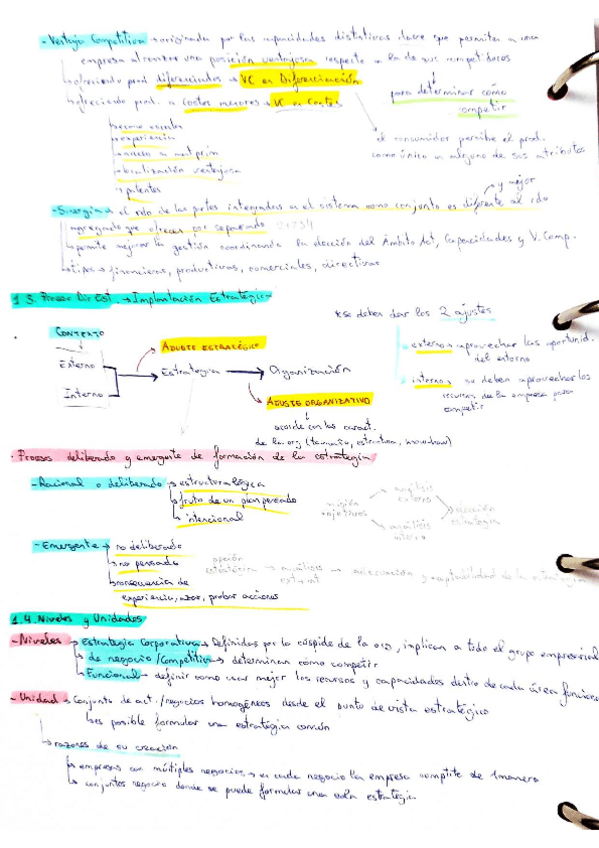 - Ventaja Competitiva → originada por las capacidades distintivas clave que permiten a una
empresa alcanzar una posición ventajosa respecto a la de sus competidores
ofreciendo prod. diferenciados → VC en Diferenciación
para determinar cómo
competir
ofreciendo prod. a costes menores → VC en Costes
el consumidor percibe el prod.
como único en alguno de sus atributos
experiencia
acceso a mat. prim
localización ventajosa
patentes
y mejor
- Sinergia → el rdo de las partes integradas en el sistema como conjunto es diferente al rdo
agregando que ofrecen por separado
permite mejorar la gestión coordinando la elección del Ámbito Act, Capacidades y V. Comp.
tipos → financieras, productivas, comerciales, directivas
1.3. Proceso Dir Est. → Implantación Estratégica
* se deben dar los 2 ajustes
CONTEXTO
Externo
Interno
AJUSTE ESTRATÉGICO
→ Estrategia → Organización
AJUSTE ORGANIZATIVO
acorde con las caract.
de la org (tamaño, estructura, know-how)
externo → aprovechar las oportunid.
del entorno
interno → se deben aprovechar los
recursos de la empresa para
competir
· Proceso deliberado y emergente de formación de la estrategia
- Racional o deliberado → estructura lógica
fruto de un plan pensado
intencional
misión
objetivos
análisis
externo
análisis
interno
elección
estratégica
- Emergente → no deliberado
no pensada
consecuencia de
experiencia, azar, probar acciones
opción
estratégica → análisis
ext + int
→ adecuación y aceptabilidad de la estrategia
1.4. Niveles y Unidades
- Niveles → Estrategia Corporativa → Definidas por la cúspide de la org, implican a todo el grupo empresarial
de negocio/Competitiva → determinan como competir
Funcional → definir como usar mejor los recursos y capacidades dentro de cada área funciona
- Unidad → Conjunto de act. / negocios homogéneos desde el punto de vista estratégico
es posible formular una estrategia común
razones de su creación
empresas con múltiples negocios → en cada negocio la empresa compite de 1 manera
conjuntos negocio donde se puede formular una sola estrategia